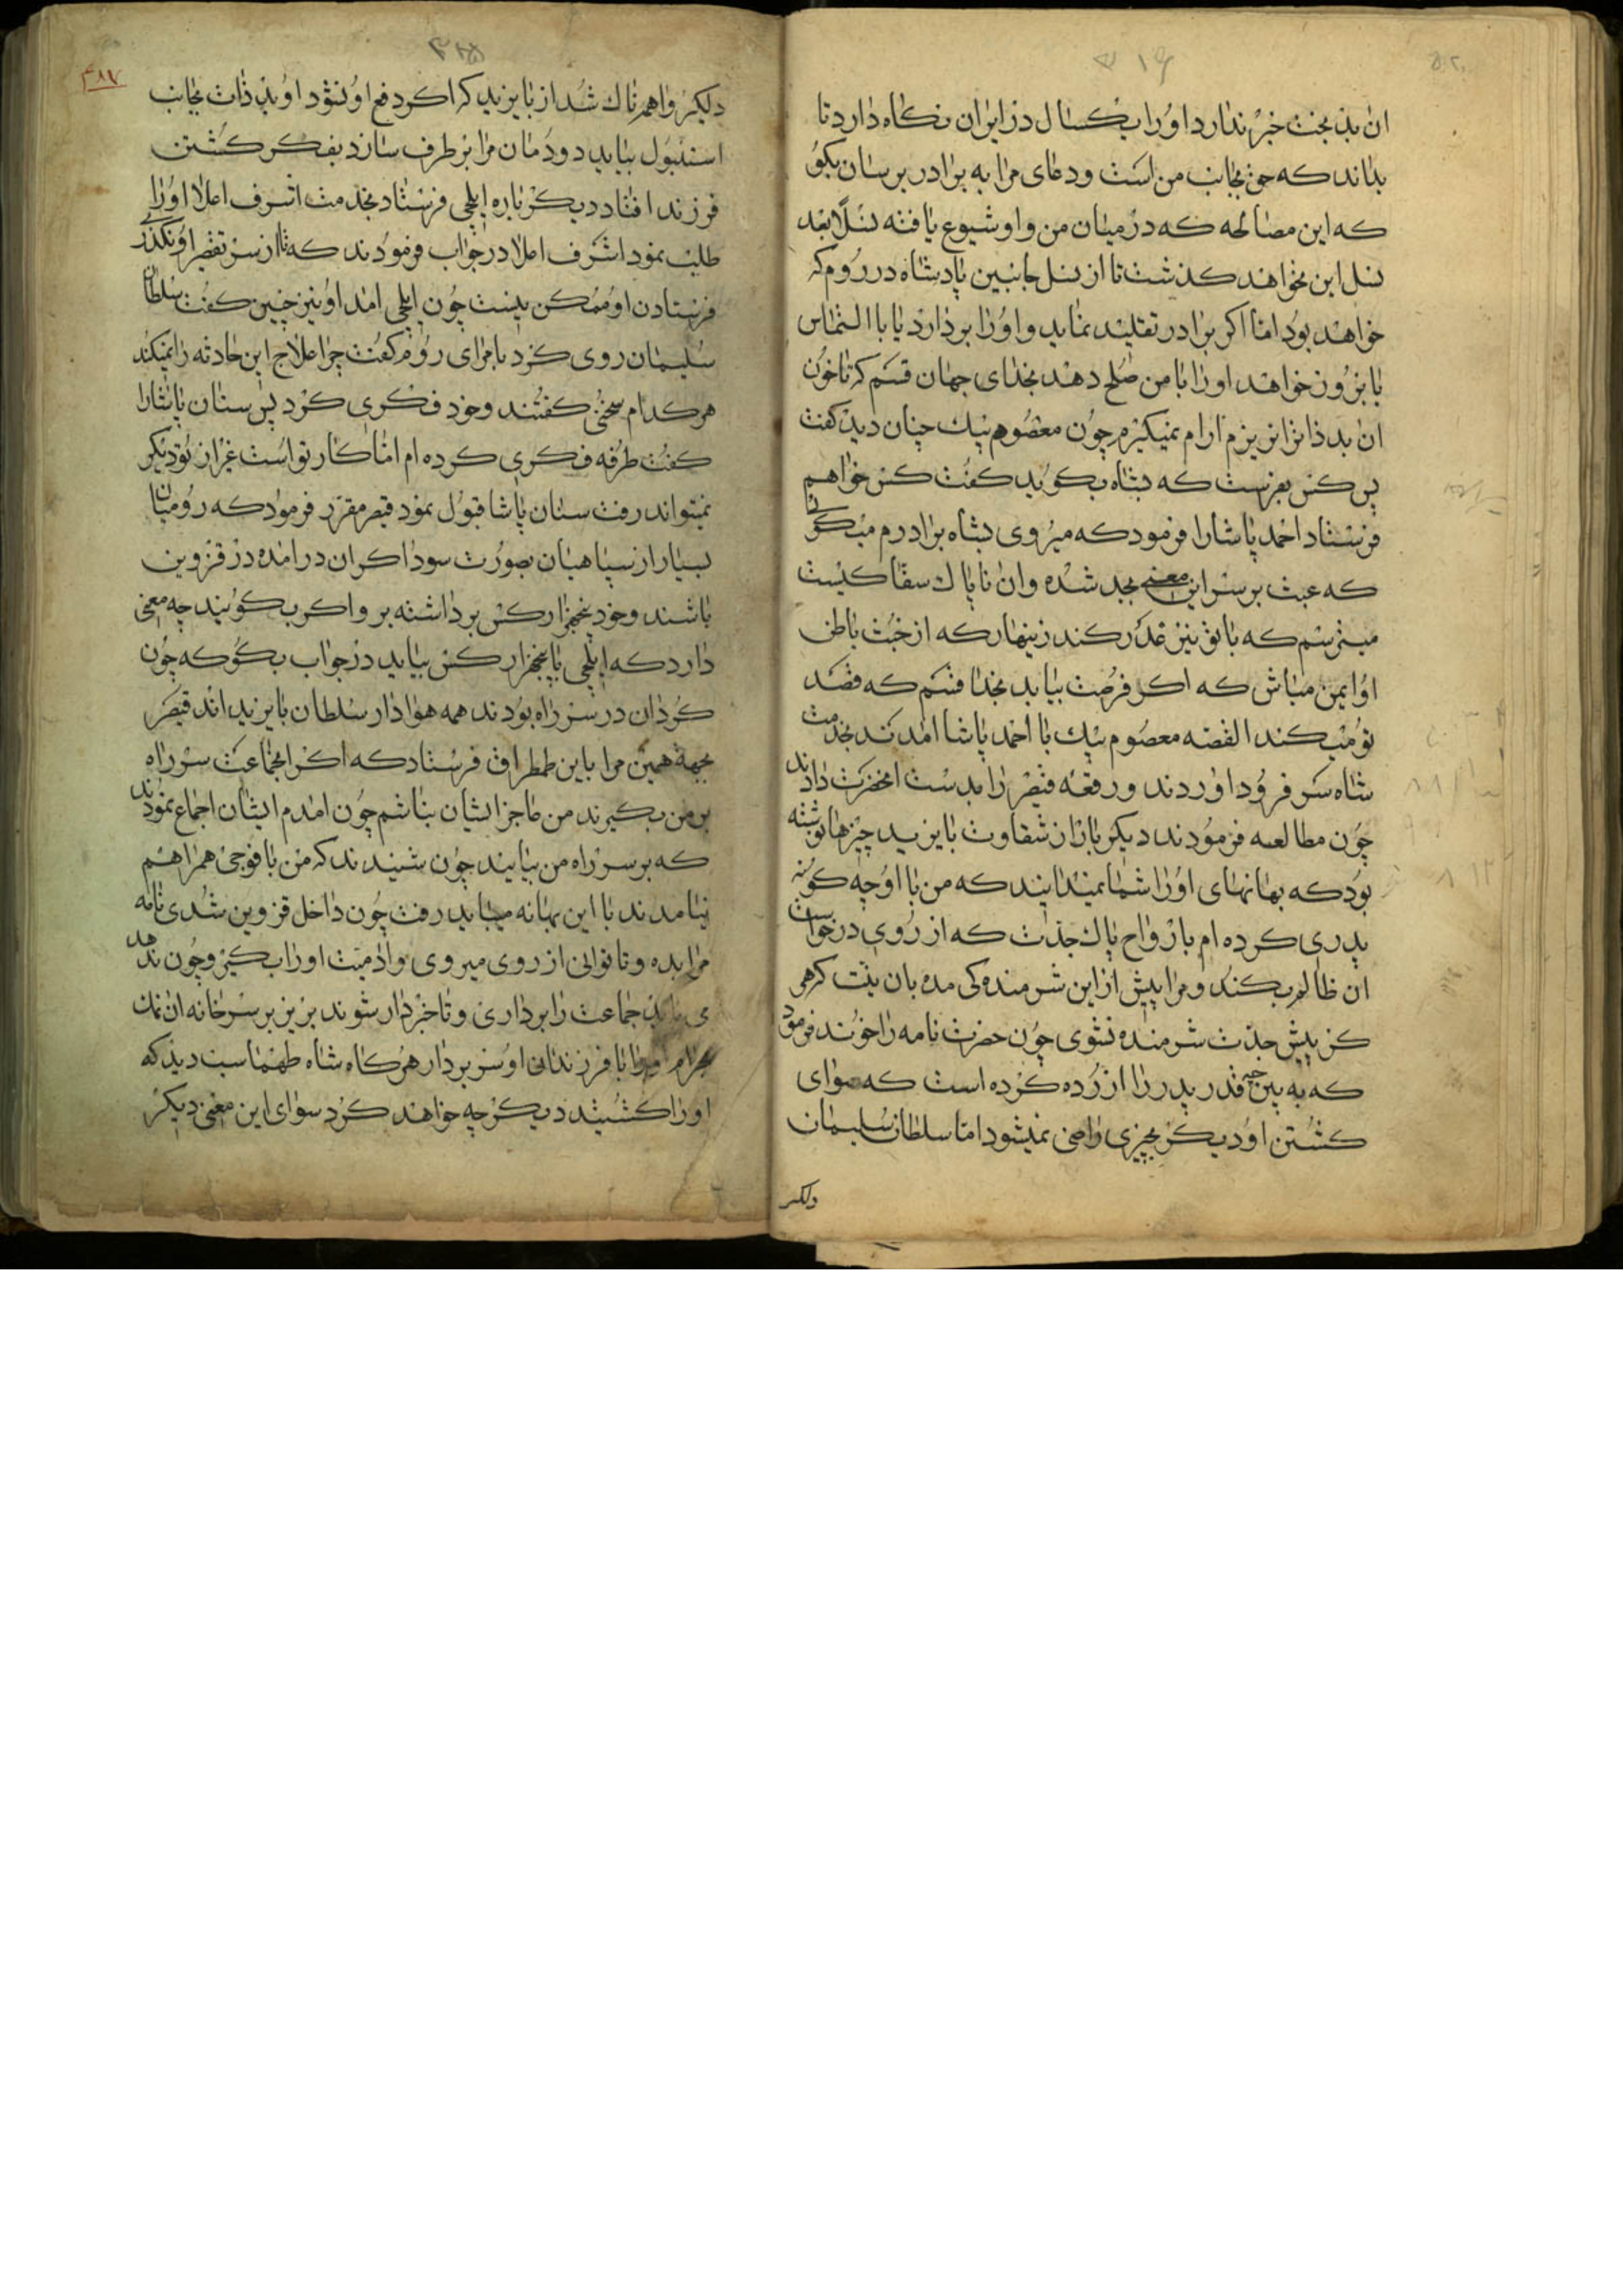 ان بد بخت خبر ندارد او را یکسال در ایران نکاه دارد تا
بداند که حق بجانب من است و دعای مرا به برادر برسان بکو
که این مصالحه که در میان من و او شیوع یافته نسلا بعد
نسل این نخواهند کذشت تا از نسل جانبین پادشاه در روم که
خواهند بود اما اکر برادر تقلیند نماید و او را بر دارد یا با التماس
یا بزور خواهد او را با من صلح دهد بخدای جهان قسم که تا خون
ان بد ذات را نریزم ارام نمیکیرم چون معصوم بیک چنان دید کفت
پس کس بفرست که بشاه بکوید کفت کس خواهم
فرستاد احمد پاشا را فرمود که میروی بشاه برادرم میکویی
که عبث بر سر این معنی بجد شده و ان ناپاک سفاکیست
میترسم که با تو نیز غدر کند زینهار که از خبث باطن
او ایمن مباش که اکر فرصت بیابد بخدا قسم که قصد
تو میکند القصه معصوم بیک با احمد پاشا امدند بخدمت
شاه سر فرود اوردند و رقعه قیصر را بدست انحضرت دادند
چون مطالعه فرمودند دیکر باز از شقاوت بایزید چیزها نوشته
بود که بهانهای او را شما نمیدانید که من با او چه کونه
پدری کرده ام بارواح پاک جدت که از روی درخواست
ان ظالم بکند و مرا پیش از این شرمنده کی مده بان نیت کرهی
کز پیش جدت شرمنده نشوی چون حضرت نامه را خوند فرمود
که به بین چه قدر پدر را ازرده کرده است که سوای
کشتن او دیکر بچیزی راضی نمیشود اما سلطان سلیمان
دلکیر
۴۸۷
دلکیر و واهمه ناک شد از بایزید که اکر دفع او نشود او بد ذات بجانب
استنبول بیاید دودمان مرا بر طرف سازد بفکر کشتن
فرزند افتاد دیکر باره ایلچی فرستاد بخدمت اشرف اعلا او را
طلب نمود اشرف اعلا در جواب فرمودند که تا از سر تقصیر او نکذرد
فرستادن او ممکن نیست چون ایلچی امد او نیز چنین کفت سلطان
سلیمان روی کرد بامرای روم کفت چرا علاج این حادثه را نمیکنند
هر کدام سخنی کفتند و خود فکری کرد پس سنان پاشا را
کفت طرفه فکری کرده ام اما کار تواست غیر از تو دیکر
نمیتواند رفت سنان پاشا قبول نمود قیصر مقرر فرمود که رومیان
بسیار از سپاهیان بصورت سوداکران در امده در قزوین
باشند و خود پنجهزار کس برداشته برو اکر بکویند چه معنی
دارد که ایلچی با پنجهزار کس بیاید در جواب بکو که چون
کردان در سر راه بودند همه هوادار سلطان بایزید اند قیصر
بجهة همین مرا باین طمطراق فرستاد که اکر انجماعت سر راه
بر من بکیرند من عاجز ایشان نباشم چون امدم ایشان اجماع نمودند
که بر سر راه من بیایند چون شنیدند که من با فوجی همراهم
نیامدند با این بهانه میباید رفت چون داخل قزوین شدی نامه
مرا بده و تا توانی از روی میروی و ادمیت او را بکیر و چون ندهد
می باید جماعت را برداری و تا خبردار شوند بریز بر سر خانه ان نمک
بحرام و او را با فرزندانی او سر بردار هرکاه شاه طهماسب دید که
او را کشتید دیکر چه خواهند کرد سوای این معنی دیکر